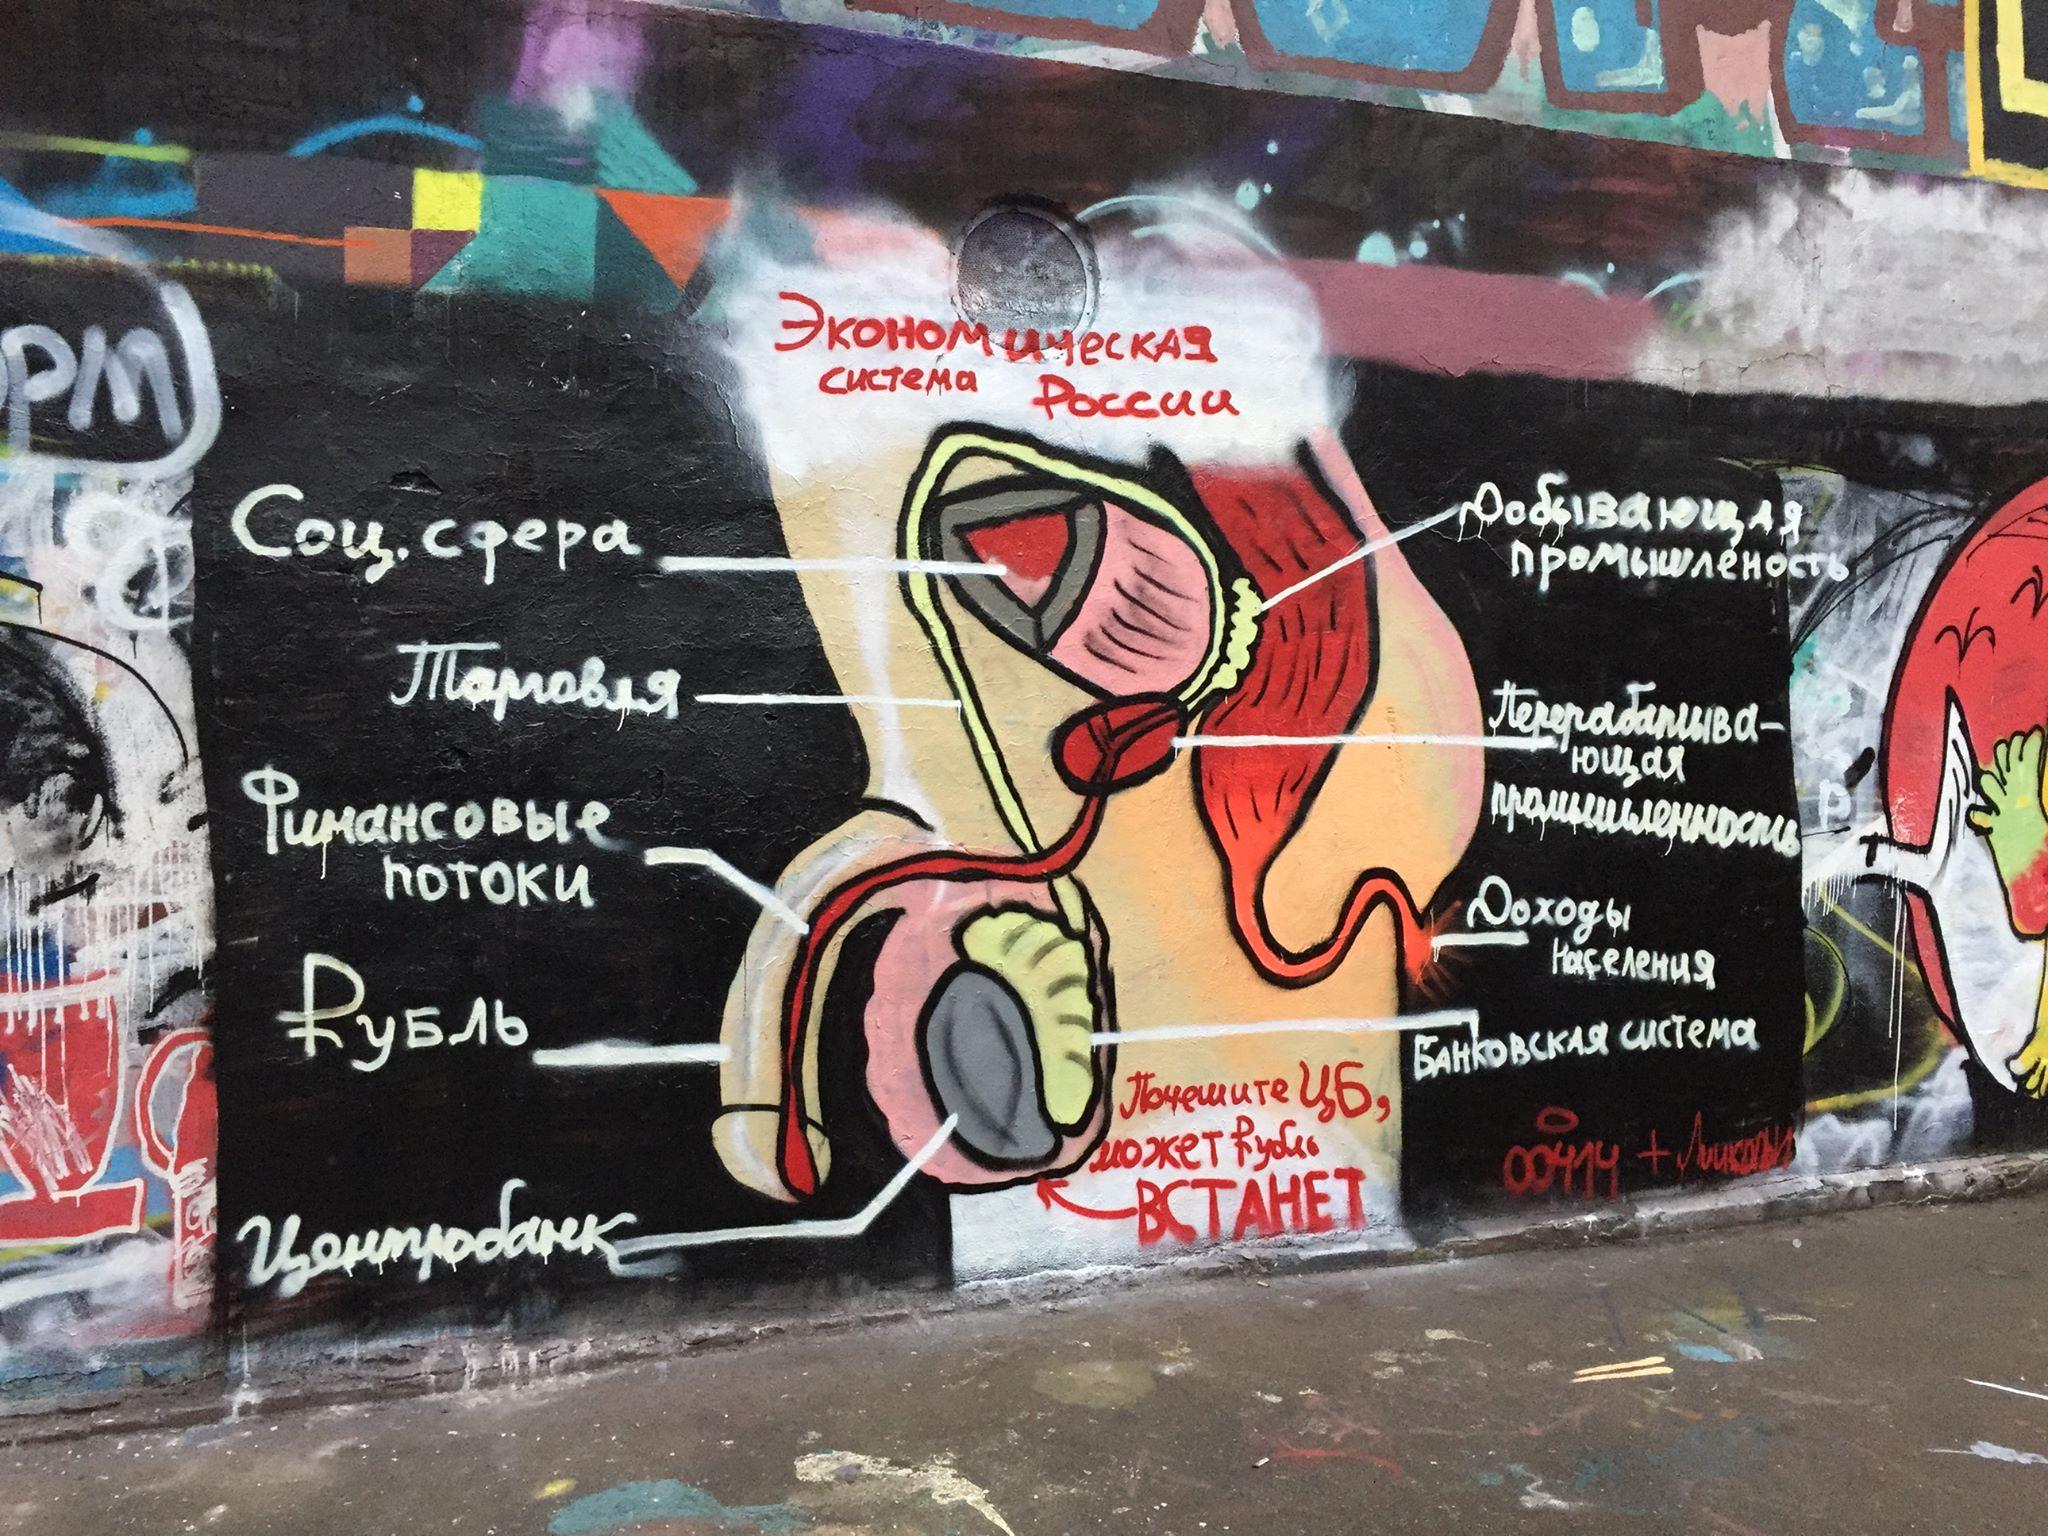 Экономическая
система России
Соц. сфера
Торговля
Финансовые
потоки
Rубль
Центробанк
Добывающая
промышленость
Перерабатыва-
ющая
промышленность
Доходы
населения
Банковская система
Почешите ЦБ,
может Rубль
ВСТАНЕТ
00414 +